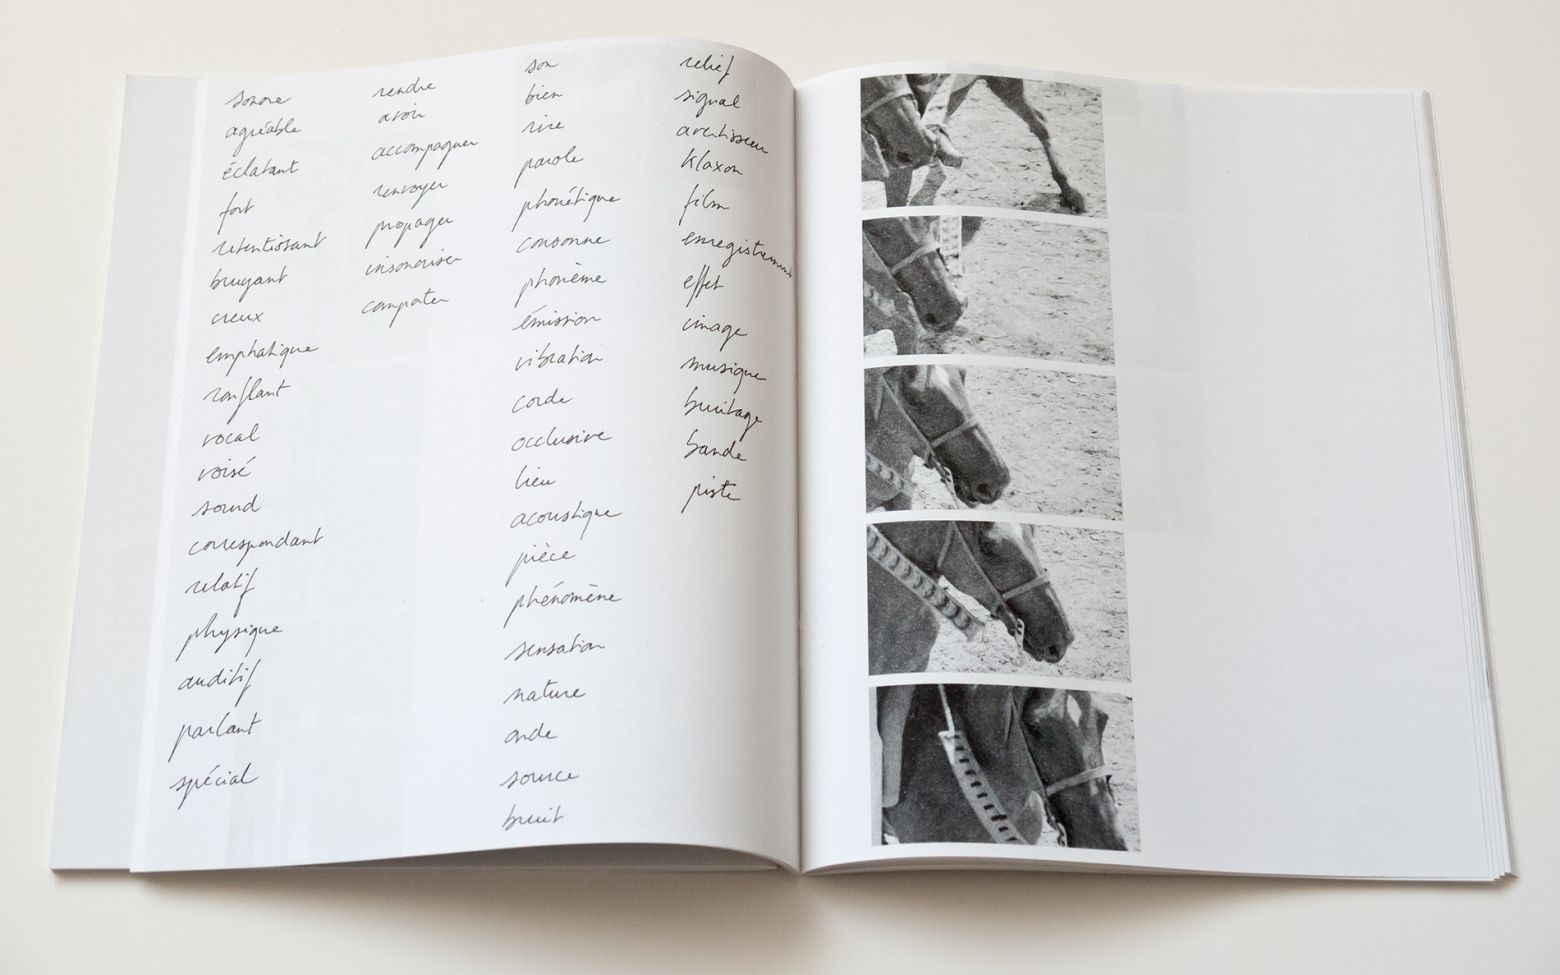 sonore
agréable
éclatant
fort
retentissant
bruyant
creux
emphatique
ronflant
vocal
voisé
sourd
correspondant
relatif
physique
auditif
parlant
spécial
rendre
avoir
accompagner
renvoyer
propager
insonoriser
capter
son
bien
rire
parole
phonétique
consonne
phonème
émission
vibration
corde
occlusive
lieu
acoustique
pièce
phénomène
sensation
nature
onde
source
bruit
relief
signal
avertisseur
klaxon
film
enregistrement
effet
image
musique
bruitage
bande
piste